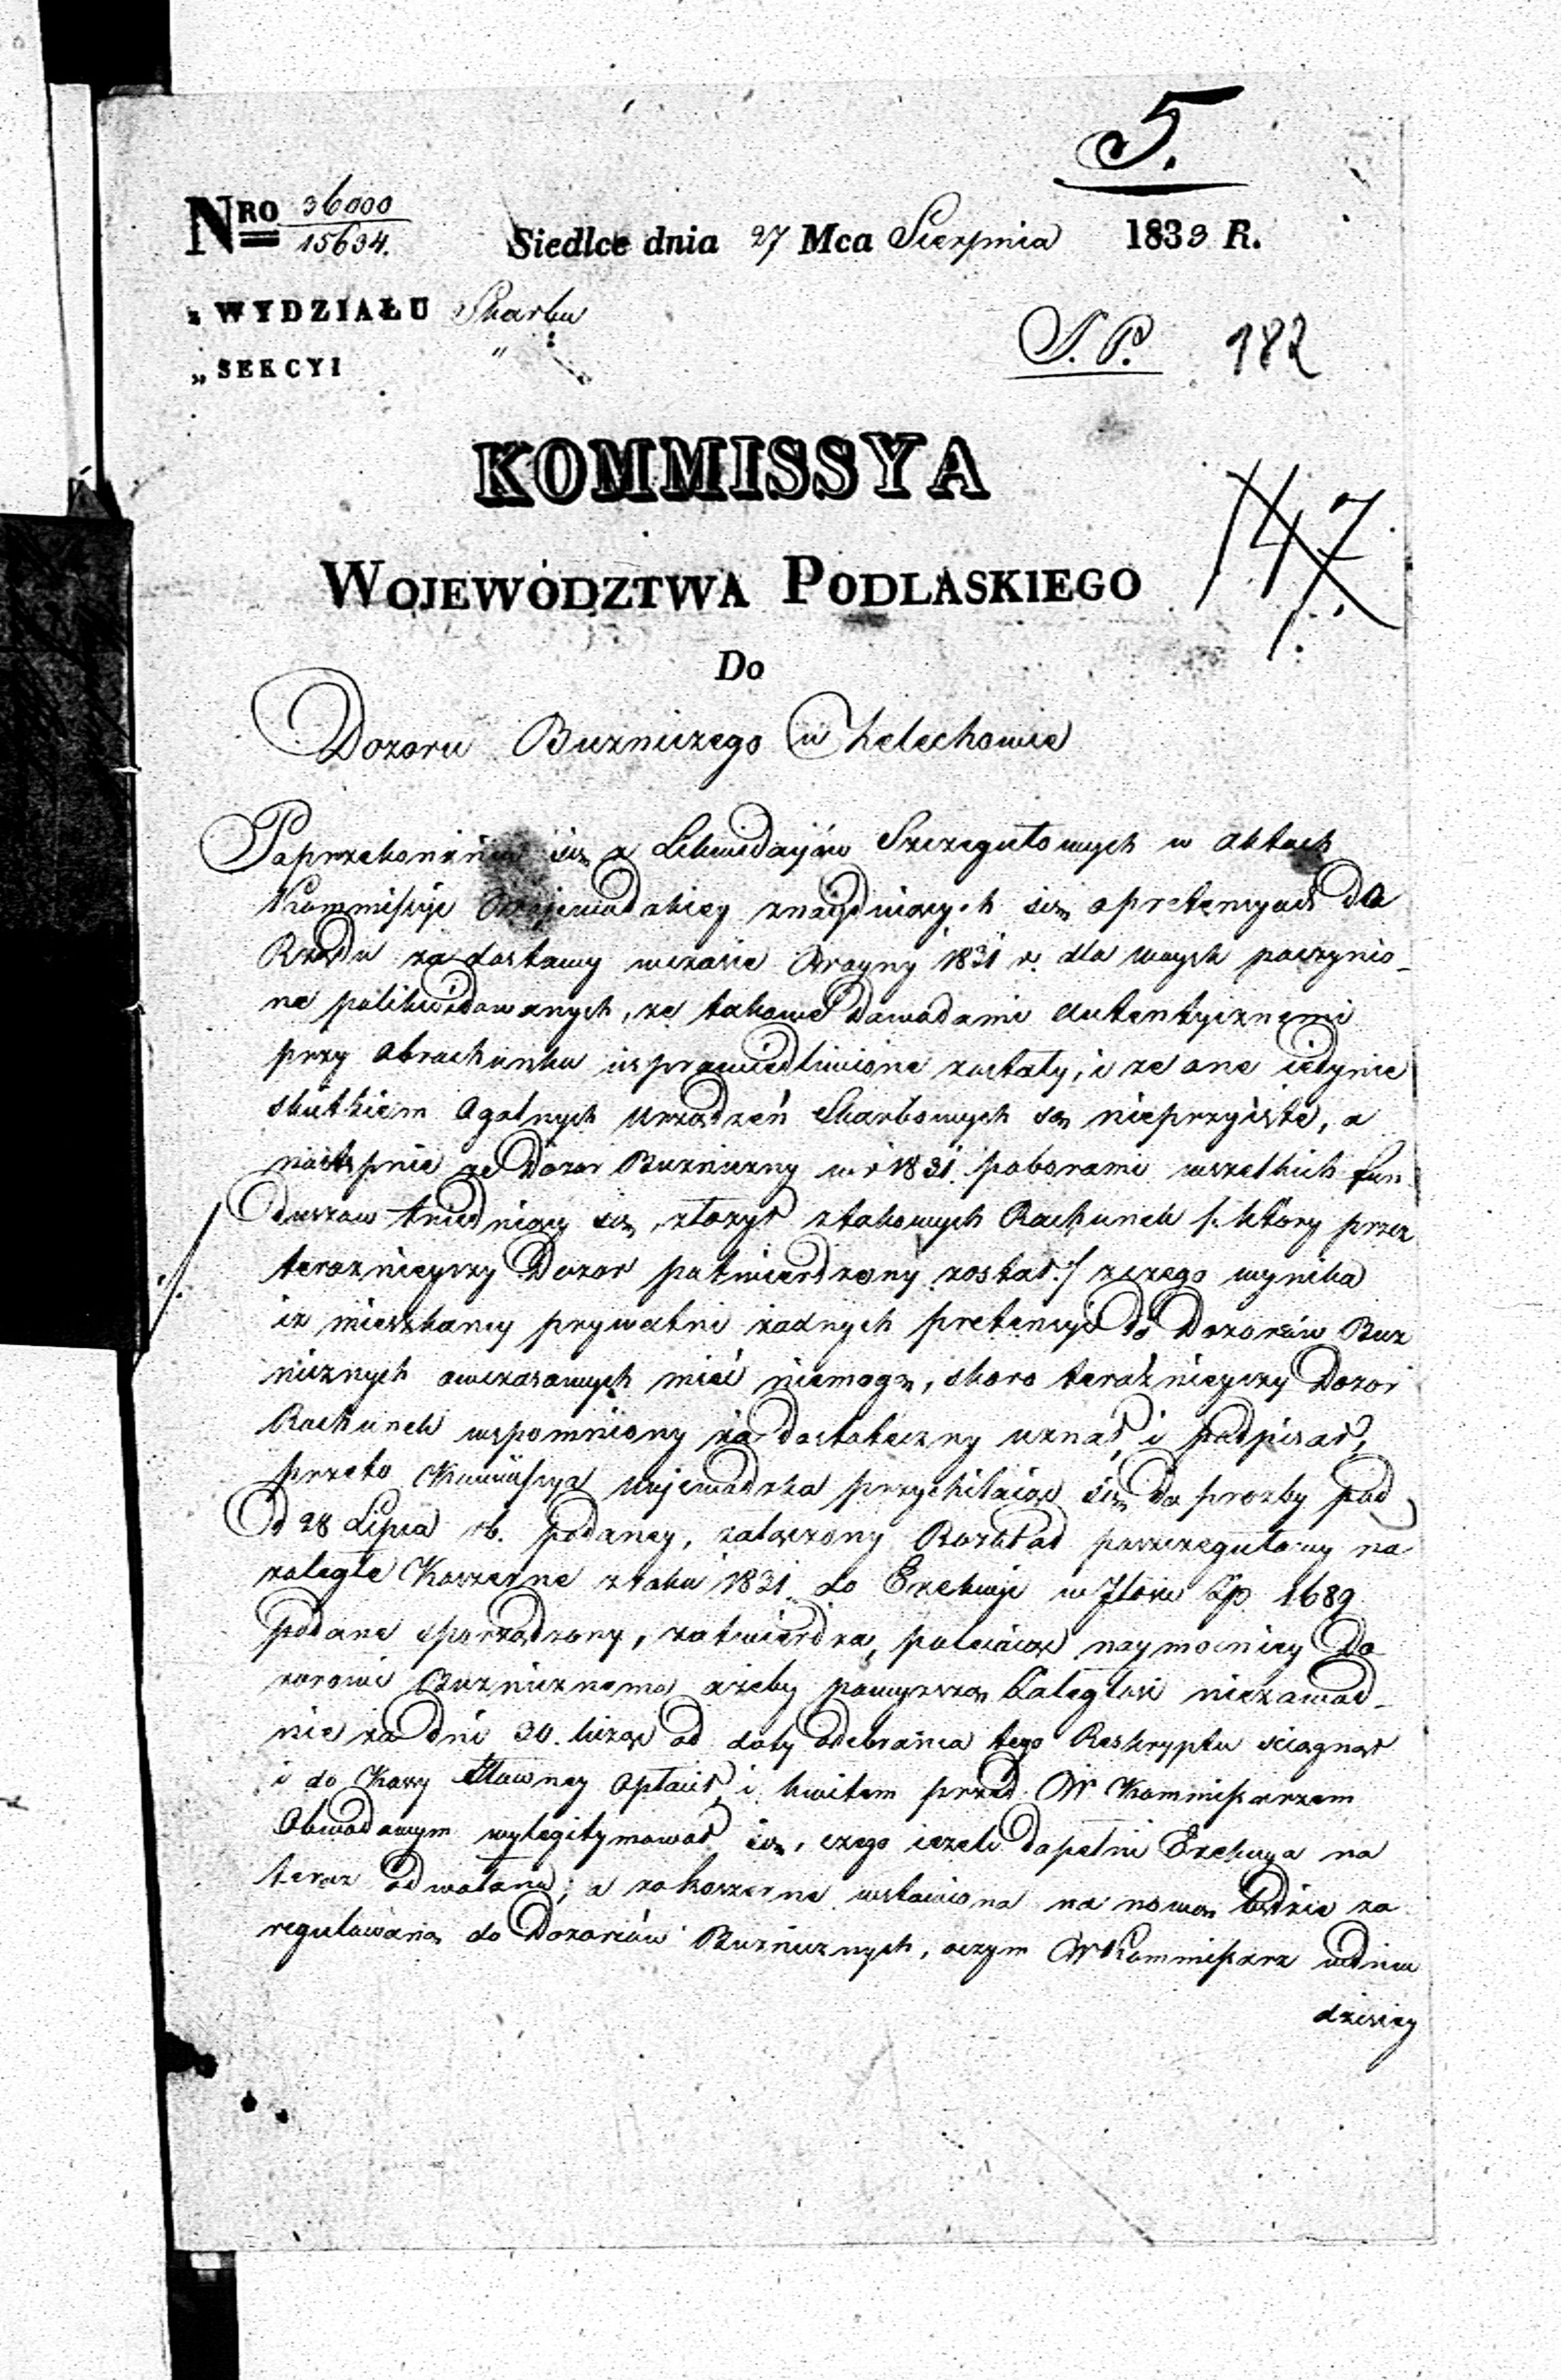 5.
NRO 36000
15634.
Siedlce dnia 27 Mca Sierpnia 1833 R.
z WYDZIAŁU Skarbu
„ SEKCYI „
S. P. 182
KOMMISSYA
147
WOJEWÓDZTWA PODLASKIEGO
Do
Dozoru Buzniczego w Zelechowie
Poprzekonaniu się z Likwidacyiów Szczegułowych w aktach
Kommissyi Wojewodzkiey znayduiących się opretensyach do
Rządu za dostawy wczasie Woyny 1831 r. dla woysk poczynio-
ne polikwidowanych, ze takowe dowodami autentycznemi
przy obrachunku usprawiedliwione zostały, i ze one iedynie
skutkiem ogolnych urządzeń Skarbowych są nieprzyięte, a
następnie ze Dozor Buzniczny w r 1831. poborami wszelkich fun
duszow trudniący się, złozył ztakowych Rachunek /: ktory przez
teraznieyszy Dozor potwierdzony został :/ zczego wynika
iz mieszkancy prywatni zadnych pretensyi do Dozorów Buz
nicznych owczasowych mieć niemogą, skoro teraźnieyszy Dozor
Rachunek wspomniony za dostateczny uznał, i podpisał,
przeto Kommissya Wojewodzka przychilaiąc się do prozby pod
d 28 Lipca rb. podaney, załączony Rozkład poszczegułowy na
zaległe Koszerne z roku 1831. do Exekucyi w Ilości Zp. 1689
podane sporządzony, zatwierdza, polecaiąc naymocniey Do
zorowi Buznicznemu azeby powyzszą Zaległość niezawod-
nie za dni 30. licząc od daty odebrania tego Reskryptu sciągnął
i do Kassy Główney opłacił, i kwitem przed W Kommissarzem
Obwodowym wylegitymował się, czego iezeli dopełni Exekucya na
teraz odwołana, a za koszerne wstawiona na nowo będzie za
regulowana do Dozorców Buznicznych, oczym W Kommissarz wdniu
dzisiey